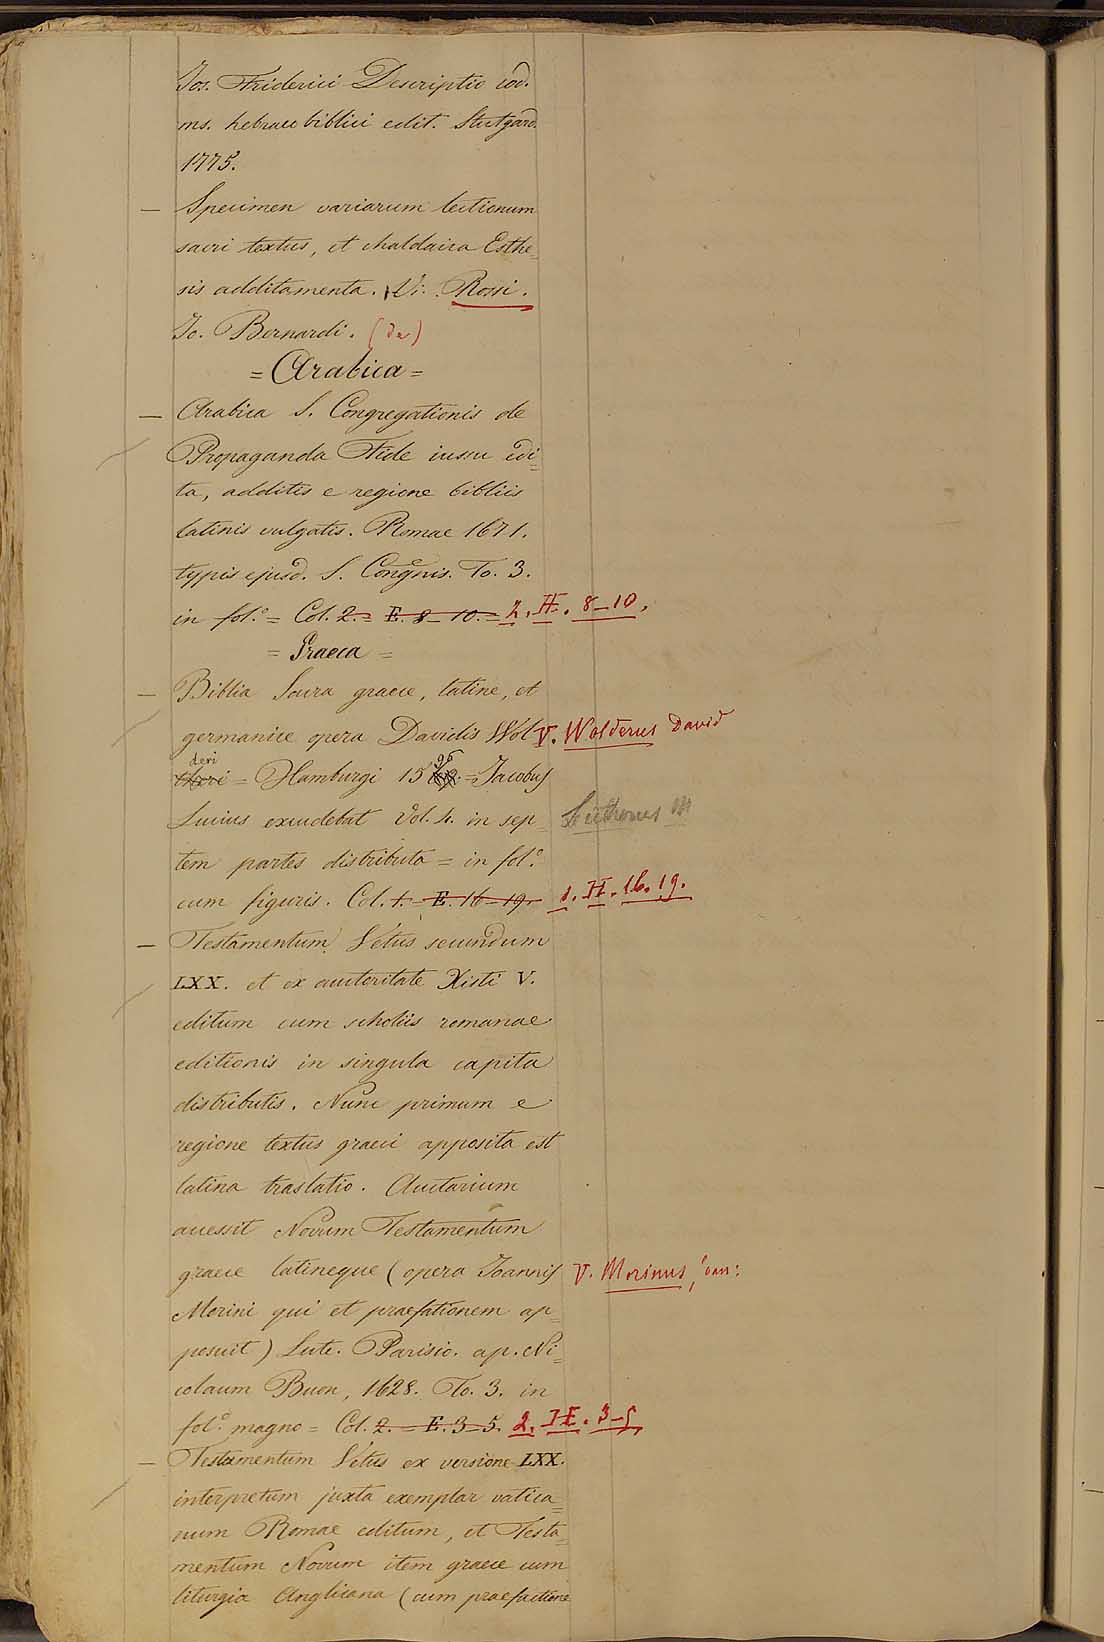 Jos. Friderici Descriptio cod.
ms. hebraeo biblici edit. Stutgard.
1775.
— Specimen variarum lectionum
sacri textus, et chaldaica Esthe=
ris additamenta. V. Rossi.
Jo. Bernardi. (De)
= Arabica =
— Arabica S. Congregationis de
Propaganda Fide iussu edi=
ta, additis e regione bibliis
latinis vulgatis. Romae 1671.
typis ejusd. S. Congnis. To. 3.
in fol.° = Col. 2. = E. 8–10. = 2. H. 8–10.
= Graeca =
— Biblia Sacra graece, latine, et
germanice opera Davidis Wol V. Wolderus David
deri = Hamburgi 1596. = Jacobus
Lucius excudebat Vol. 4. in sep= Lutherus M
tem partes distributa = in fol.°
cum figuris. Col. 1. = E. 16–19. 1. H. 16. 19.
— Testamentum Vetus secundum
LXX. et ex auctoritate Xisti V.
editum cum scholiis romanae
editionis in singula capita
distributis. Nunc primum e
regione textus graeci apposita est
latina traslatio. Auctarium
accessit Novum Testamentum
graece latineque (opera Joannis V. Morinus, Joan:
Morini qui et praefationem ap=
posuit) Lute. Parisio. ap. Ni=
colaum Buon, 1628. To. 3. in
fol.° magno = Col. 2. = E. 3–5. 2. H. 3–5
— Testamentum Vetus ex versione LXX.
interpretum juxta exemplar vatica=
num Romae editum, et Testa=
mentum Novum item graece cum
liturgia Anglicana (cum praefactione